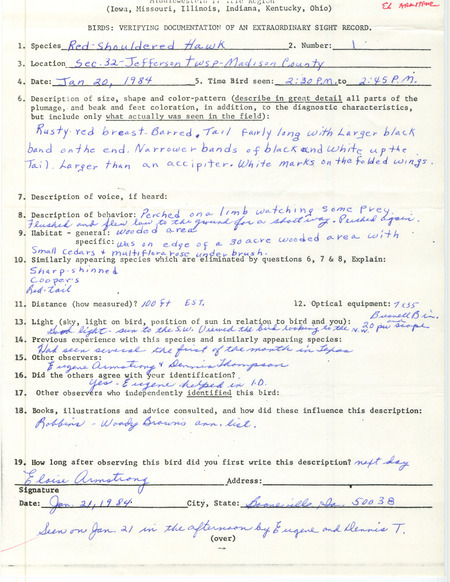 El Armstrong
(Iowa, Missouri, Illinois, Indiana, Kentucky, Ohio)
BIRDS: VERIFYING DOCUMENTATION OF AN EXTRAORDINARY SIGHT RECORD.
1. Species Red-Shouldered Hawk 2. Number: 1
3. Location Sec-32-Jefferson twsp-Madison County
4. Date: Jan 20, 1984 5. Time Bird seen: 2:30 P.M. to 2:45 P.M.
6. Description of size, shape and color-pattern (describe in great detail all parts of the
plumage, and beak and feet coloration, in addition, to the diagnostic characteristics,
but include only what actually was seen in the field):
Rusty-red breast-Barred. Tail fairly long with Larger black
band on the end. Narrower bands of black and white up the
Tail. Larger than an accipiter. White marks on the folded wings.
7. Description of voice, if heard:
8. Description of behavior: Perched on a limb watching some prey
Flushed and flew low to the ground for a short way. Perched again.
9. Habitat - general: wooded area
specific: was on edge of a 30 acre wooded area with
Small Cedars + multiflora rose under brush.
10. Similarly appearing species which are eliminated by questions 6, 7 & 8, Explain:
Sharp-shinned
Coopers
Red-tail
11. Distance (how measured)? 100 ft EST. 12. Optical equipment: 7x35
Bin.
13. Light (sky, light on bird, position of sun in relation to bird and you): 20 pw scope
Good light - sun to the S.W. Viewed the bird looking to the N.W.
14. Previous experience with this species and similarly appearing species:
Had seen several the first of the month in Texas
15. Other observers:
Eugene Armstrong & Dennis Thompson
16. Did the others agree with your identification?
Yes - Eugene helped in I.D.
17. Other observers who independently identified this bird:
18. Books, illustrations and advice consulted, and how did these influence this description:
Robbins - Woody Brown's ann. list.
19. How long after observing this bird did you first write this description? next day
Eloise Armstrong Address:
Signature
Date: Jan. 21, 1984 City, State: Booneville, Ia. 50038
Seen on Jan. 21 in the afternoon by Eugene and Dennis T.
(over)